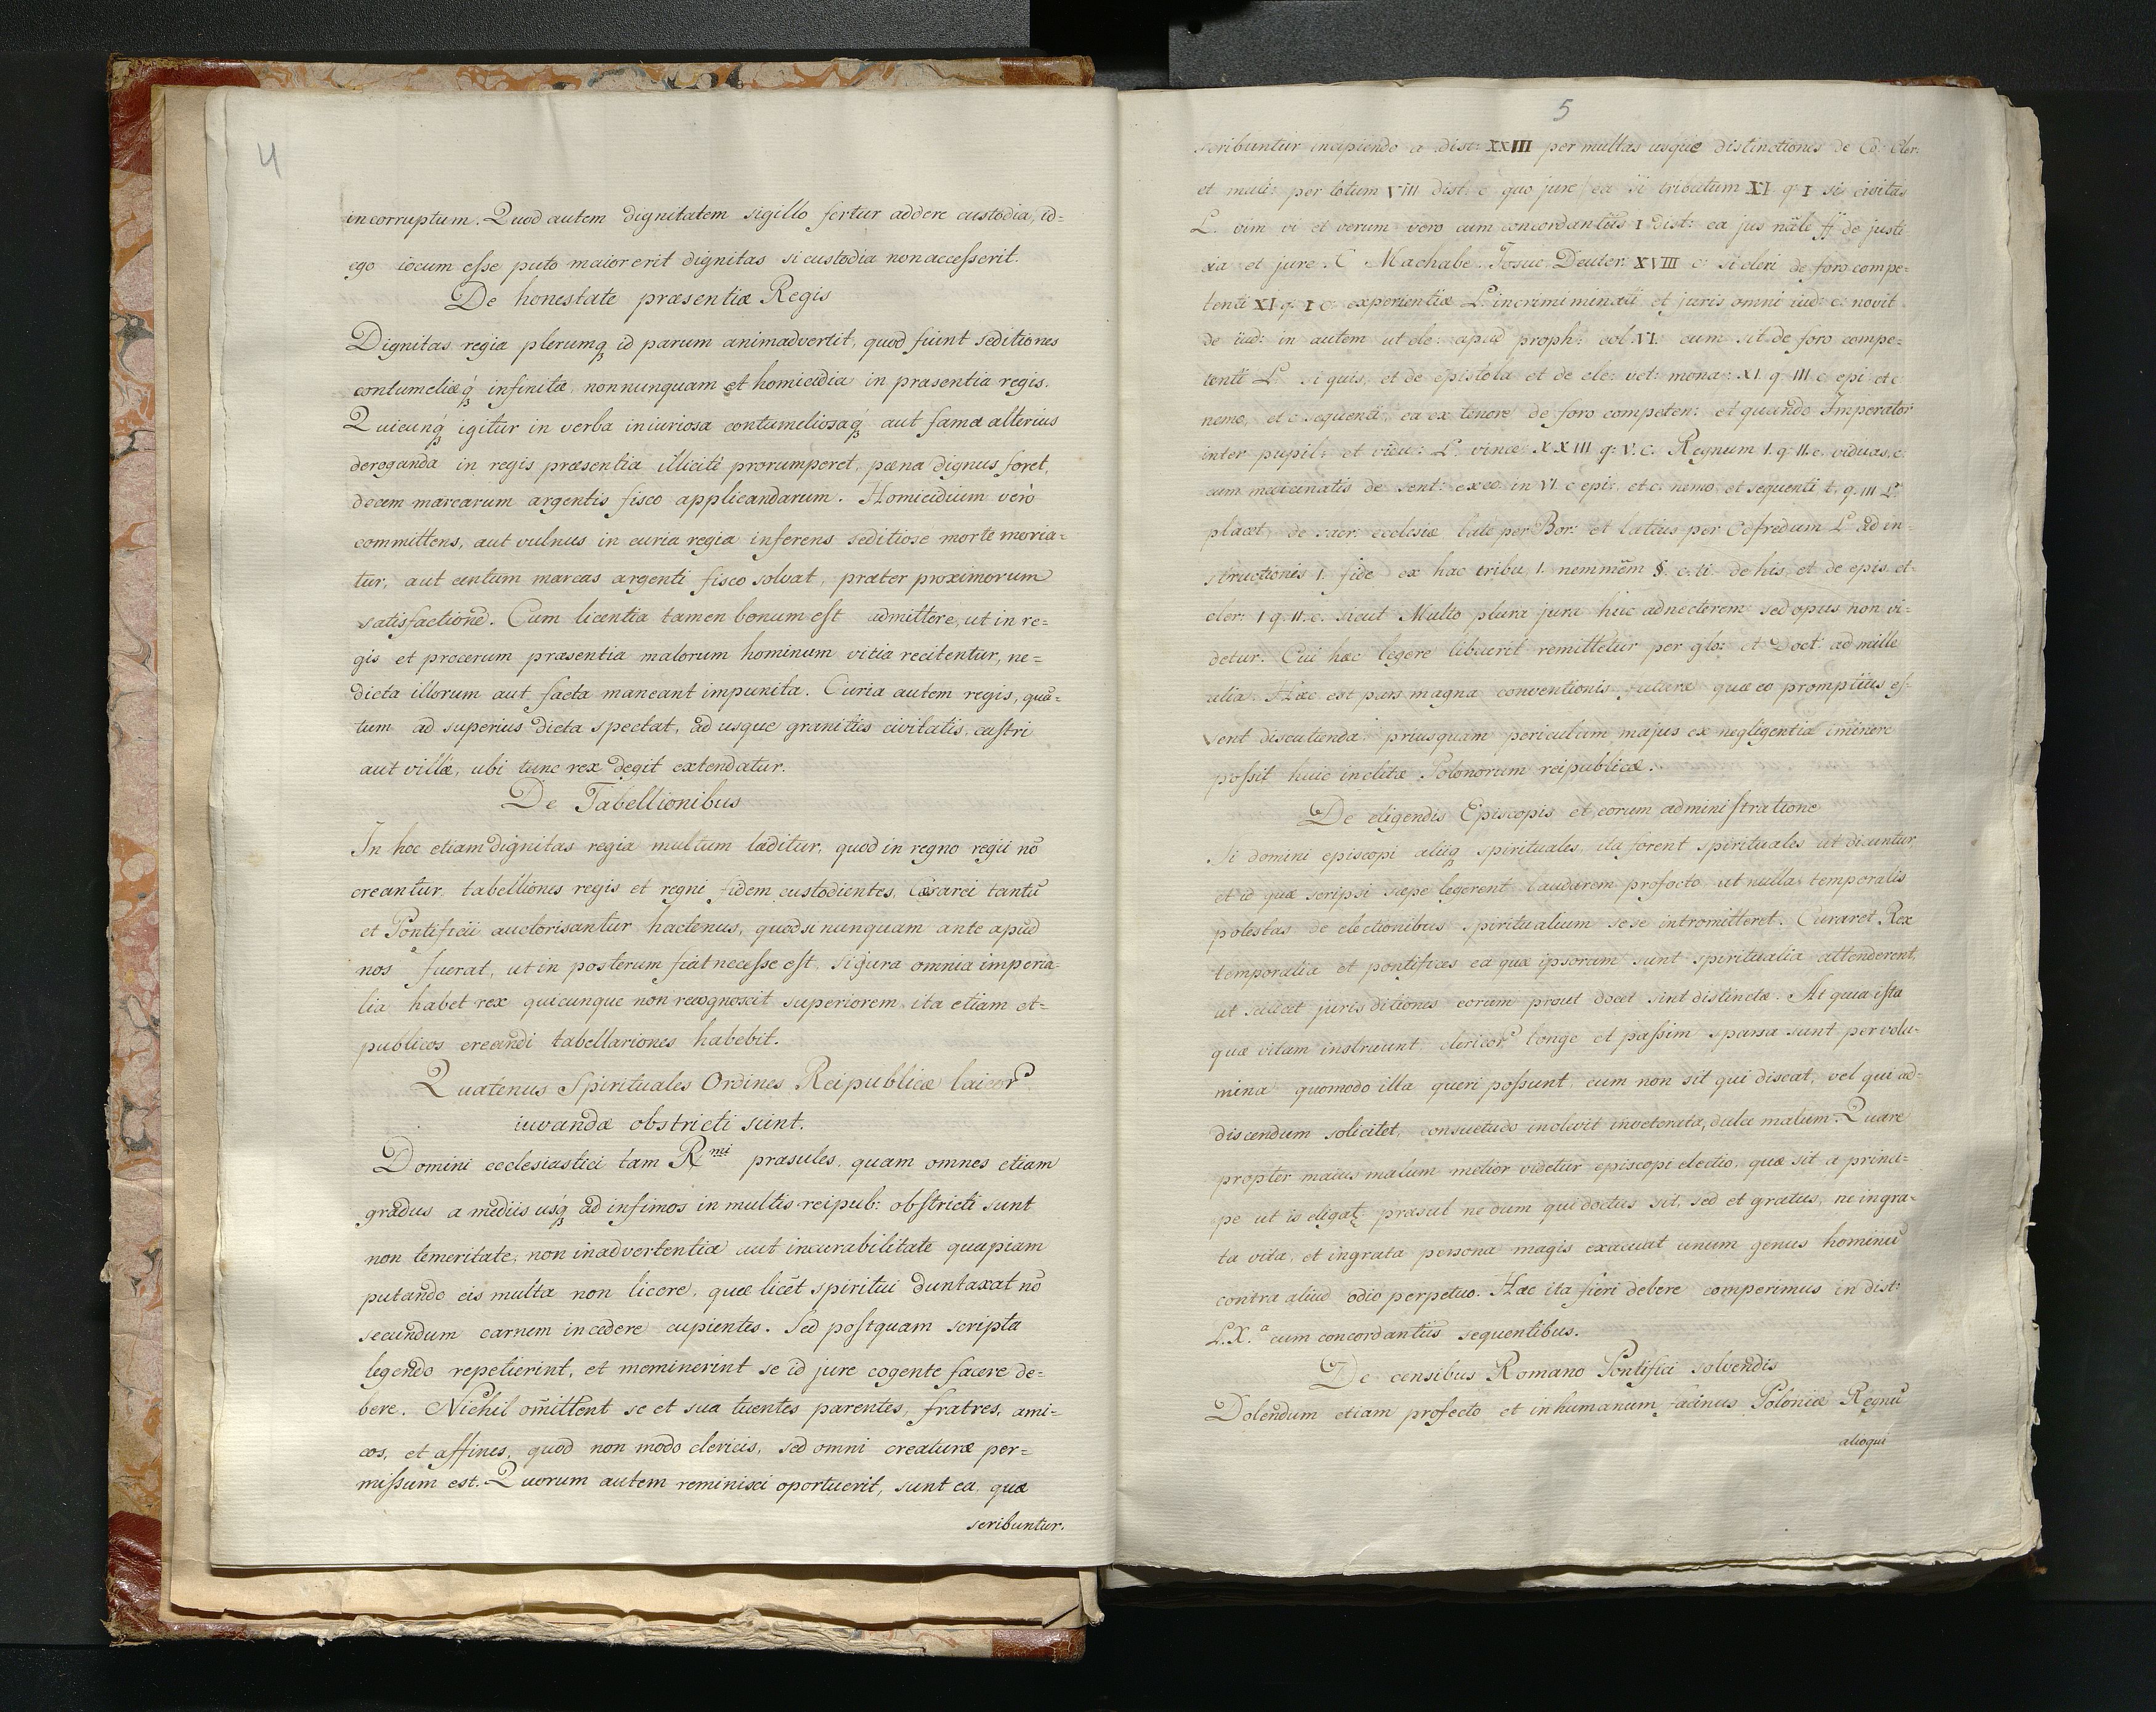 4
incorruptum. Quod autem dignitatem sigillo fertur addere custodia, id=
ego iocum esse puto maior erit dignitas si custodia non accesserit.
De honestate præsentiæ Regis
Dignitas regia plerumq3 id parum animadvertit, quod fiunt seditiones
contumeliæq3 infinitæ, nonnunquam et homicidia in præsentia regis.
Quicunq3 igitur in verba iniuriosa contumeliosaq3 aut famæ alterius
deroganda in regis præsentia illicitè prorumperet, pæna dignus foret,
decem marcarum argentis fisco applicandarum. Homicidium verò
committens, aut vulnus in curia regia inferens seditiose morte moria=
tur, aut centum marcas argenti fisco solvat, præter proximorum
satisfactione. Cum licentia tamen bonum est admittere, ut in re=
gis et procerum præsentia malorum hominum vitia recitentur, ne=
dicta illorum aut facta maneant impunita. Curia autem regis, quā=
tum ad superius dicta spectat, ad usque granities civitatis, castri
aut villæ, ubi tunc rex degit extendatur.
De Tabellionibus
In hoc etiam dignitas regia multum læditur, quod in regno regii nō
creantur tabelliones regis et regni fidem custodientes, Cæsarei tantū
et Pontificii auctorisantur hactenus, quod si nunquam ante apud
nos fuerat, ut in posterum fiat necesse est, si jura omnia imperia=
lia habet rex quicunque non recognoscit superiorem ita etiam et=
publicos creandi tabellariones habebit.
Quatenus Spirituales Ordines Reipublicæ laicor
iuvandæ obstricti sunt.
Domini ecclesiastici tam Rmi præsules, quam omnes etiam
gradus a mediis usq3 ad infimos in multis reipub: obstricti sunt
non temeritate, non inadvertentia aut incurabilitate quapiam
putando eis multa non licere, quæ licēt spiritui duntaxat nō
secundum carnem incedere cupientes. Sed postquam scripta
legendo repetierint, et meminerint se id jure cogente facere de=
bere. Nichil om̄ittent se et sua tuentes parentes, fratres, ami=
cos, et affines, quod non modo clericis, sed omni creaturæ per=
missum est. Quorum autem reminisci oportuerit, sunt ea, quæ
scribuntur.
5
scribuntur incipiendo a dist: XXIII per multas usque distinctiones de Co: cler:
et muli: per totum VIII dist. c quo jure ea si tributum XI q: I si civitas
L. vim vi et verum vero cum concordantiis I dist: ea jus nãle ff de justi
cia et jure. C Machabe. Josue Deuter. XVIII c: si cleri de foro compe=
tenti XI q: I c: experientiæ L. incriminati et juris omni iud: c: novit
de iud: in autem ut cle: apud proph: col VI. cum sit de foro compe=
tenti L. si quis, et de epistola et de cle: vet: mona: XI q III c epi et c
nemo, et c sequenti, ea ex tenore de foro competen: et quando Imperator
inter pupil: et vidu: L. vinæ XXIII q: V. c. Regnum I. q. II. c. viduas c.
cum medicinatis de sent: exco. in VI. c epis. et c. nemo et sequenti t. q. III L.
placet, de sacr. ecclesiæ late per Bor: et latius per Odfredum L. ad in=
structionis I. fide ex hac tribu I. §. c. ti. de his, et de epis et=
cler: I q. II. c. sicut Multo plura jura huc adnecterem sed opus non vi=
detur. Cui hæc legere libuerit remittetur per glo: et Doct: ad mille
alia. Hæc est pars magna conventionis futuræ quæ eo promptius es=
sent discutienda. priusquam periculum majus ex negligentia im̄inere
possit huic inclitæ Polonorum reipublicæ.
De eligendis Episcopis et eorum administratione
Si domini episcopi aliiq3 spirituales, ita forent spirituales ut dicuntur
et id quæ scripsi sæpe legerent laudarem profecto ut nulla temporalis
potestas de electionibus spiritualium sese intromitteret. Curaret Rex
temporalia et pontifices ea quæ ipsorum sunt spiritualia attenderent,
ut scilicet juris ditiones eorum prout docet sint distinctæ. At quia ista
quæ vitam instruunt clericor longe et passim sparsa sunt per volu=
mina quomodo illa queri possunt, cum non sit qui discat, vel qui ad=
discendum solicitet, consuetudo inolevit inveterata, dulce malum. Quare
propter maius malum melior videtur episcopi electio, quæ sit a princi=
pe ut is eligat præsul ne dum qui doctus sit, sed et gratus, ne ingra=
ta vita, et ingrata persona magis exacuat unum genus hominū
contra aliud odio perpetuo. Hæc ita fieri debere comperimus in dist:
L.X.a cum concordantiis sequentibus.
De censibus Romano Pontifici solvendis
Dolendum etiam profecto et inhumanum facinus Poloniæ Regnū
alioqui